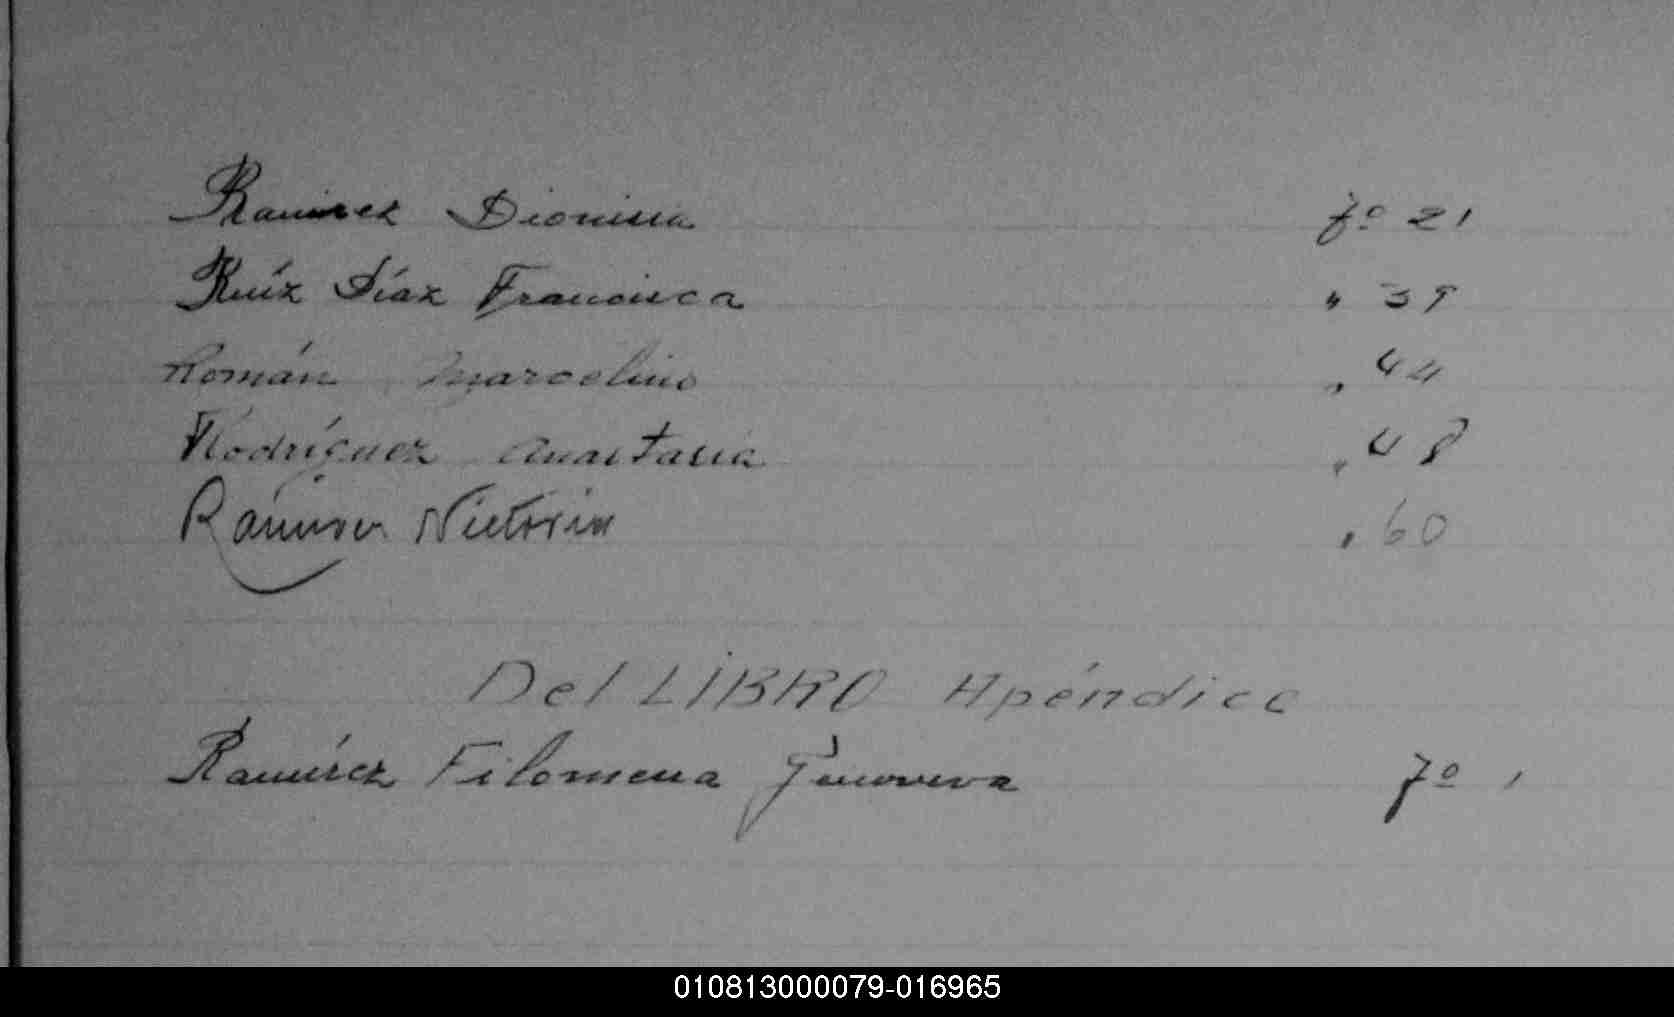 Ramirez Dionisia fº 21
Ruíz Díaz Francisca " 39
Román Marcelino " 44
Rodríguez Anastasia " 48
Ramirez Victorin " 60
Del LIBRO Apéndice
Ramírez Filomena Genoveva fº 1
010813000079-016965